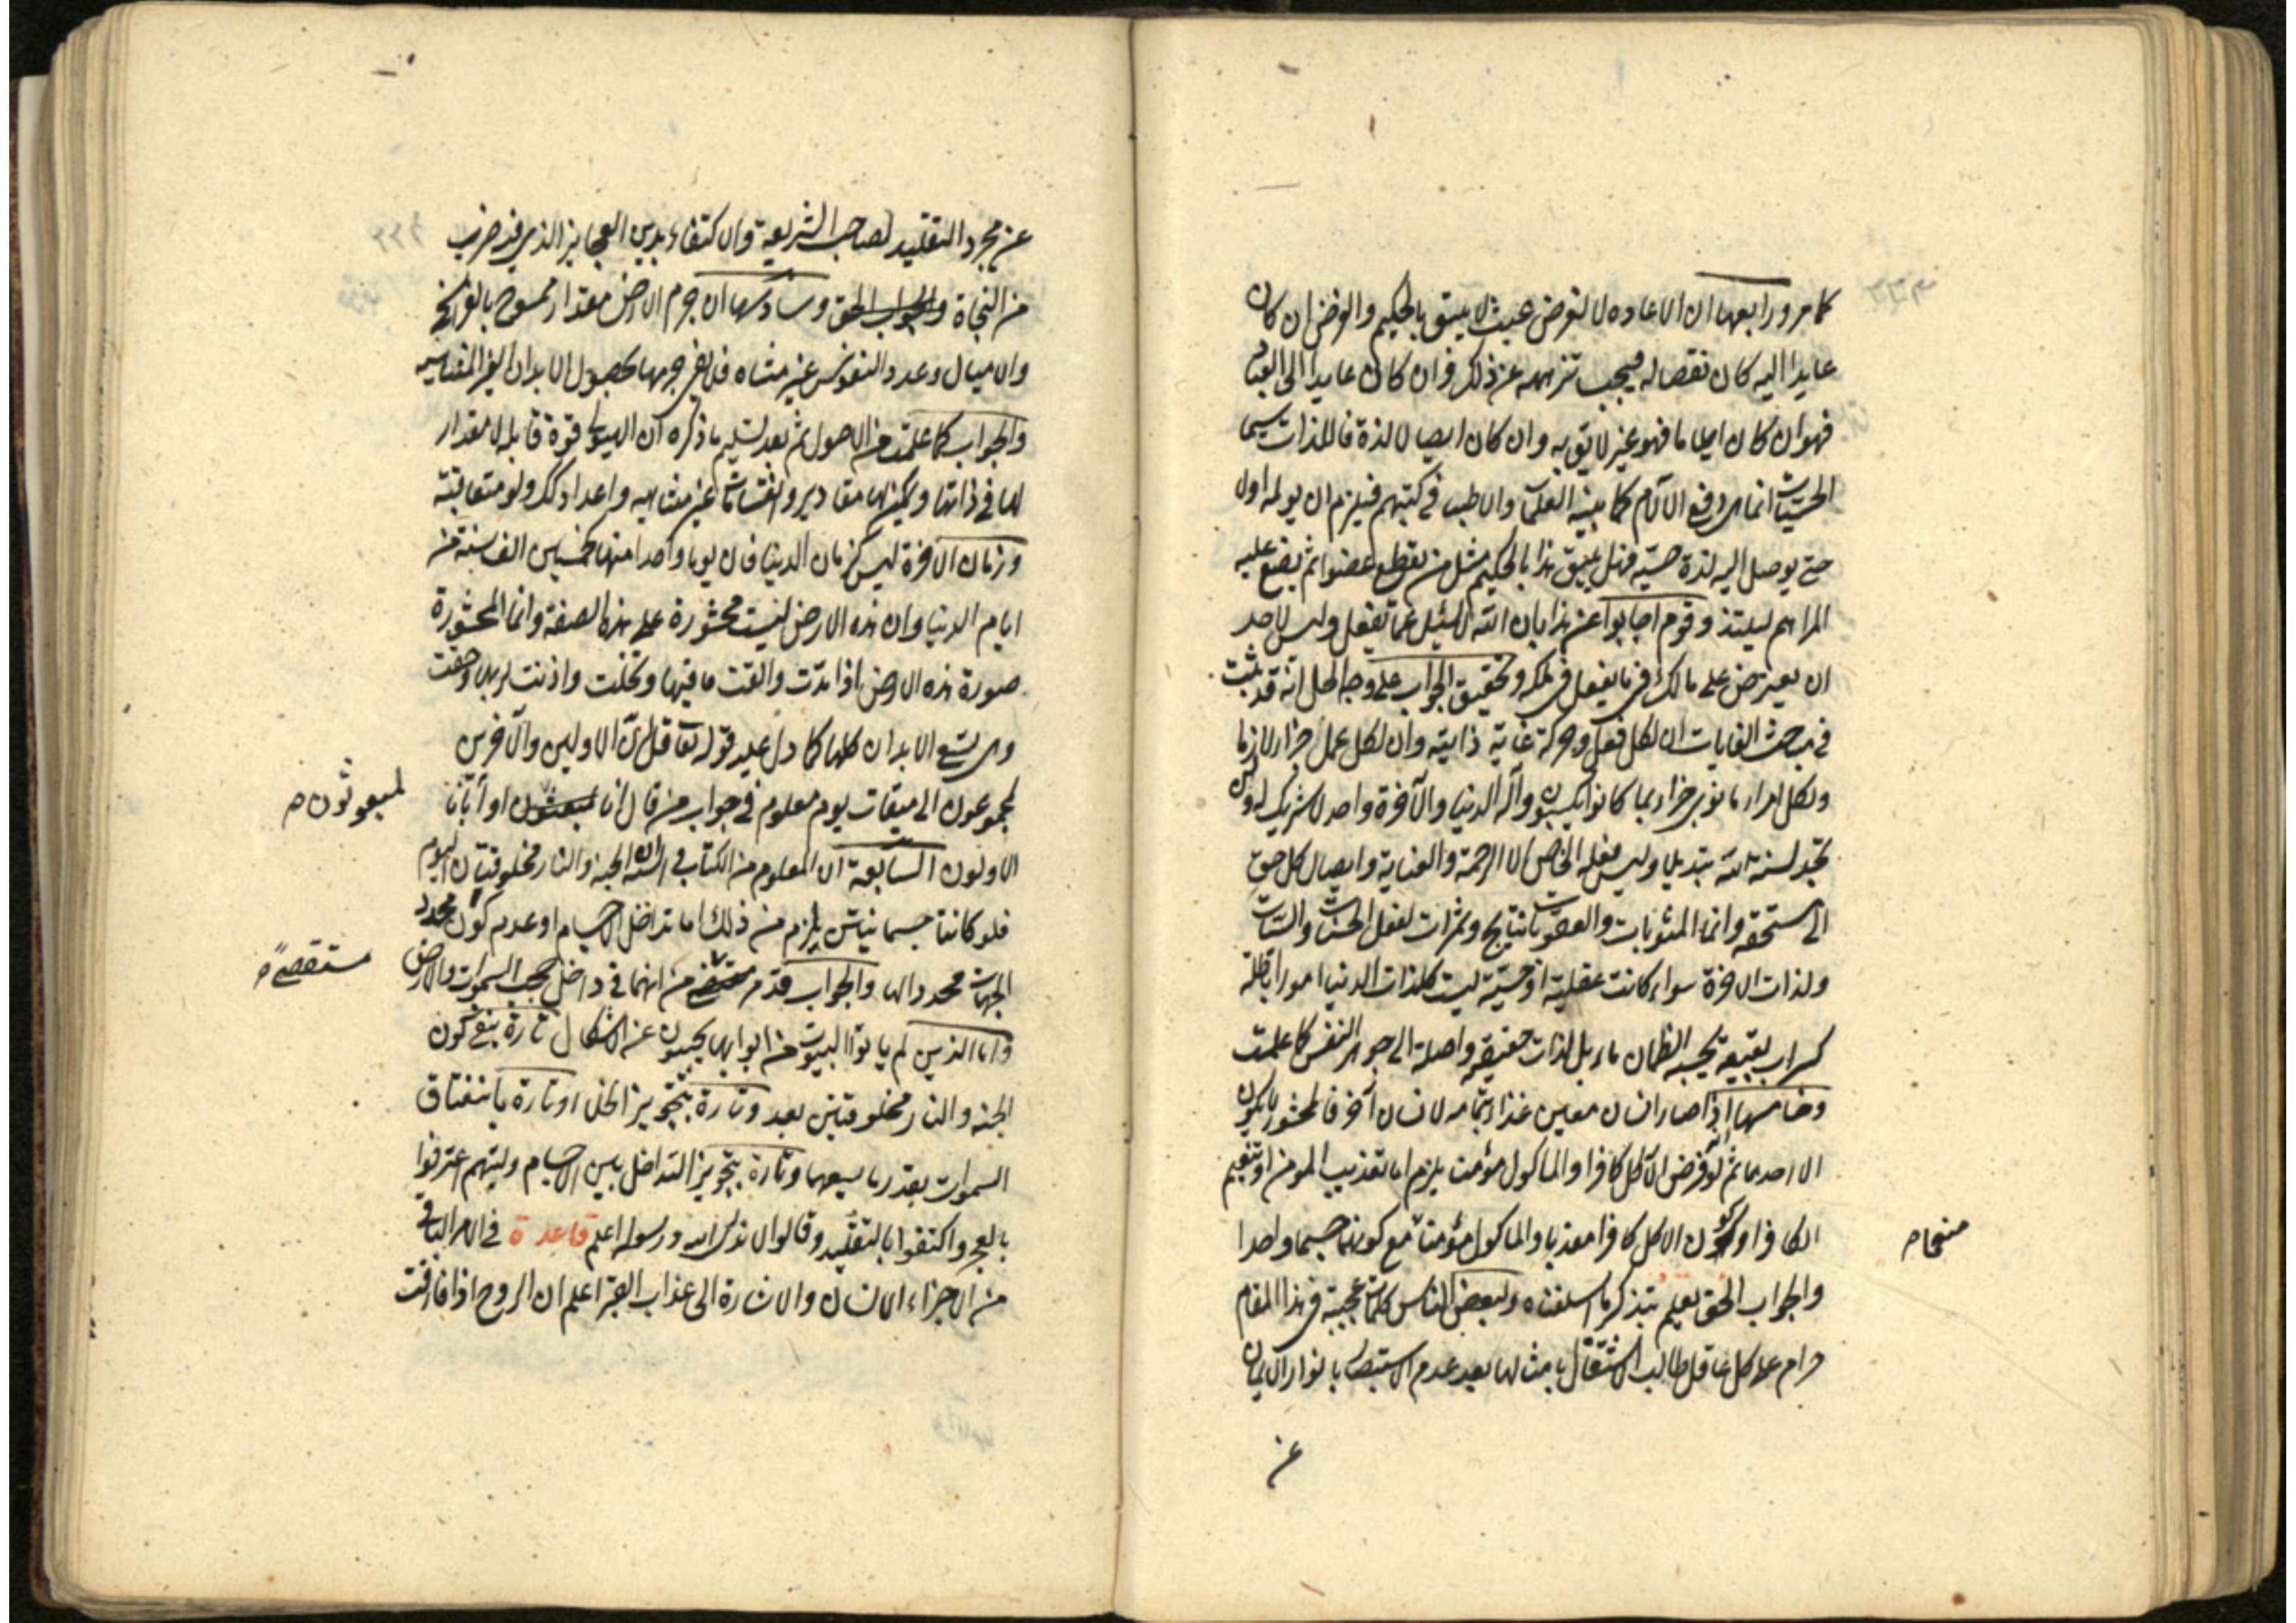 كما مر ورابعها ان الاعاده لا لغرض عبث لا يليق بالحكيم والغرض ان كان
عايدا اليه كان نقصا له فيجب تنزيهه عن ذلك وان كان عايدا الى العباد
فهو ان كان ايلاما فهو غير لايق به وان كان ايصال لذة فاللذات سيما
الحسيات انما هي دفع الآلام كما بينه العلماء والاطباء في كتبهم فيلزم ان يولمه اولا
حتى يوصل اليه لذة حسية فهل يليق هذا بالحكيم مثل من يقطع عضوا ثم يضع عليه
المراهم ليلتذ وقوم اجابوا عن هذا بان الله لا يسئل عما يفعل وليس لاحد
ان يعترض على مالك فى ما يفعل فى ملكه وتحقيق الجواب على وجه الحل انه قد ثبت
في مباحث الغايات ان لكل فعل وحركة غاية ذاتية وان لكل عمل جزاء لازما
ولكل امرء ما نوى جزاء بما كانوا يكسبون واله الدنيا والآخرة واحد لا شريك له ولن
تجد لسنة الله تبديلا وليس فعله الخاص الا الرحمة والعناية وايصال كل حق
الى مستحقه وانما المثوبات والعقوبات نتايج وثمرات لفعل الحسنات والسيئات
ولذات الاخرة سواء كانت عقلية او حسية ليست كلذات الدنيا امورا باطلة
كسراب بقيعة يحسبه الظمان ماء بل لذات حقيقية واصلة الى جوهر النفس كما علمت
وخامسها اذا صار انسان معين غذاء بتمامه لانسان آخر فالمحشور لا يكون
الا احدهما ثم لو فرض الآكل كافرا والماكول مؤمنا يلزم اما تعذيب المومن او تنعيم
الكافر او كون الاكل كافرا معذبا والماكول مؤمنا مع كونهما جسما واحدا
منعما صح
والجواب الحق يعلم بتذكر ما اسلفناه ولبعض الناس كلمات عجيبة فى هذا المقام
حرام على كل عاقل طالب الاشتغال بامثالها بعد عدم الاستبصار بانوار الايمان
عن
عن مجرد التقليد لصاحب الشريعة والاكتفاء بدين العجايز الذي فيه ضرب
من النجاة والجواب الحق وسادسها ان جرم الارض مقدار ممسوح بالفراسخ
والاميال وعدد النفوس غير متناه فلا يفى جرمها بحصول الابدان الغير المتناهيه
والجواب كما علمت من الاصول ثم بعد تسليم ما ذكره ان الهيولى قوة قابله لا مقدار
لها فى ذاتها ويمكن لها مقادير وانقسامات غير متناهيه واعداد كك ولو متعاقبة
وزمان الآخرة ليس كزمان الدنيا فان يوما واحدا منها كخمسين الف سنة من
ايام الدنيا وان هذه الارض ليست محشورة على هذه الصفة وانما المحشورة
صورة هذه الارض اذا مدت والقت ما فيها وتخلت واذنت لربها وحقت
وهى تسع الابدان كلها كما دل عليه قوله تعالى قل ان الاولين والآخرين
لمجموعون الى ميقات يوم معلوم فى جواب من قال أئنا مبعوثون او آباؤنا
لمبعوثون صح
الاولون السابعة ان المعلوم من الكتاب والسنة ان الجنة والنار مخلوقتان اليوم
فلو كانتا جسمانيتين يلزم من ذلك اما تداخل الاجسام او عدم كون محدد
الجهات محددا لها والجواب قد مر من انهما فى داخل حجب السموات والارض
مستقصى صح
واما الذين لم ياتوا البيوت من ابوابها يجيبون عن الاشكال تارة بنفى كون
الجنة والنار مخلوقتين بعد وتارة بتجويز الخلا وتارة بانفتاق
السموات بقدر ما يسعهما وتارة بتجويز التداخل بين الاجسام وليتهم اعترفوا
بالعجز واكتفوا بالتقليد وقالوا لا ندرى الله ورسوله اعلم قاعدة فى الامر الباقى
من اجزاء الانسان والاشارة الى عذاب القبر اعلم ان الروح اذا فارقت